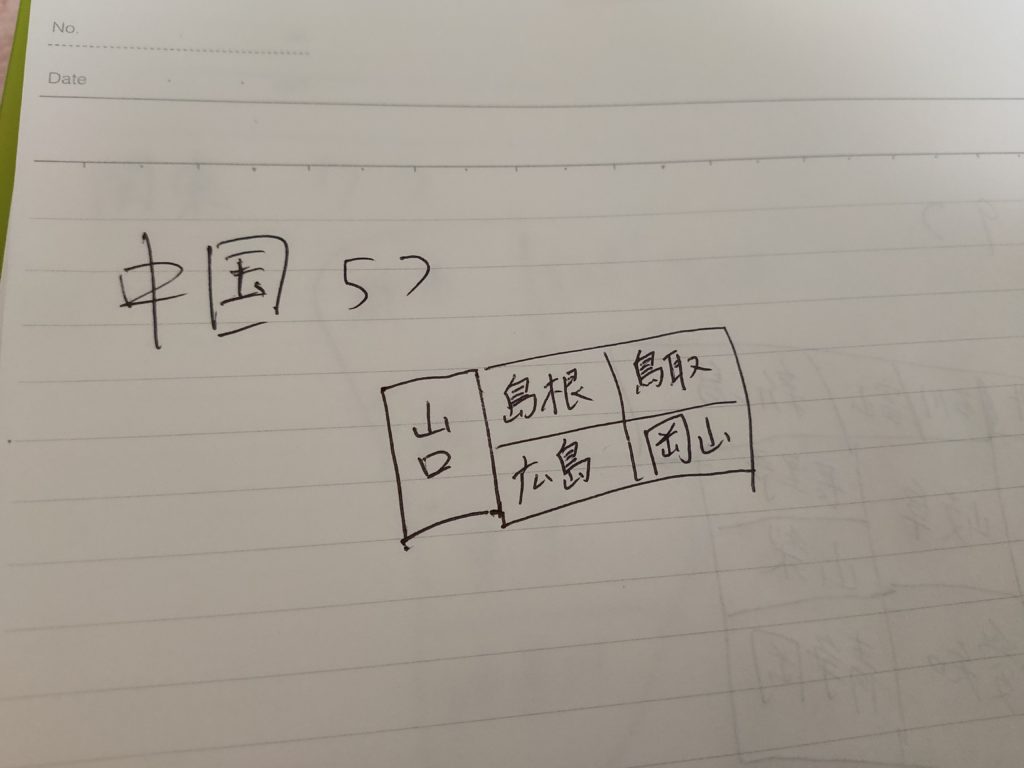 No.
Date
中国 5つ
山口
島根 鳥取
広島 岡山